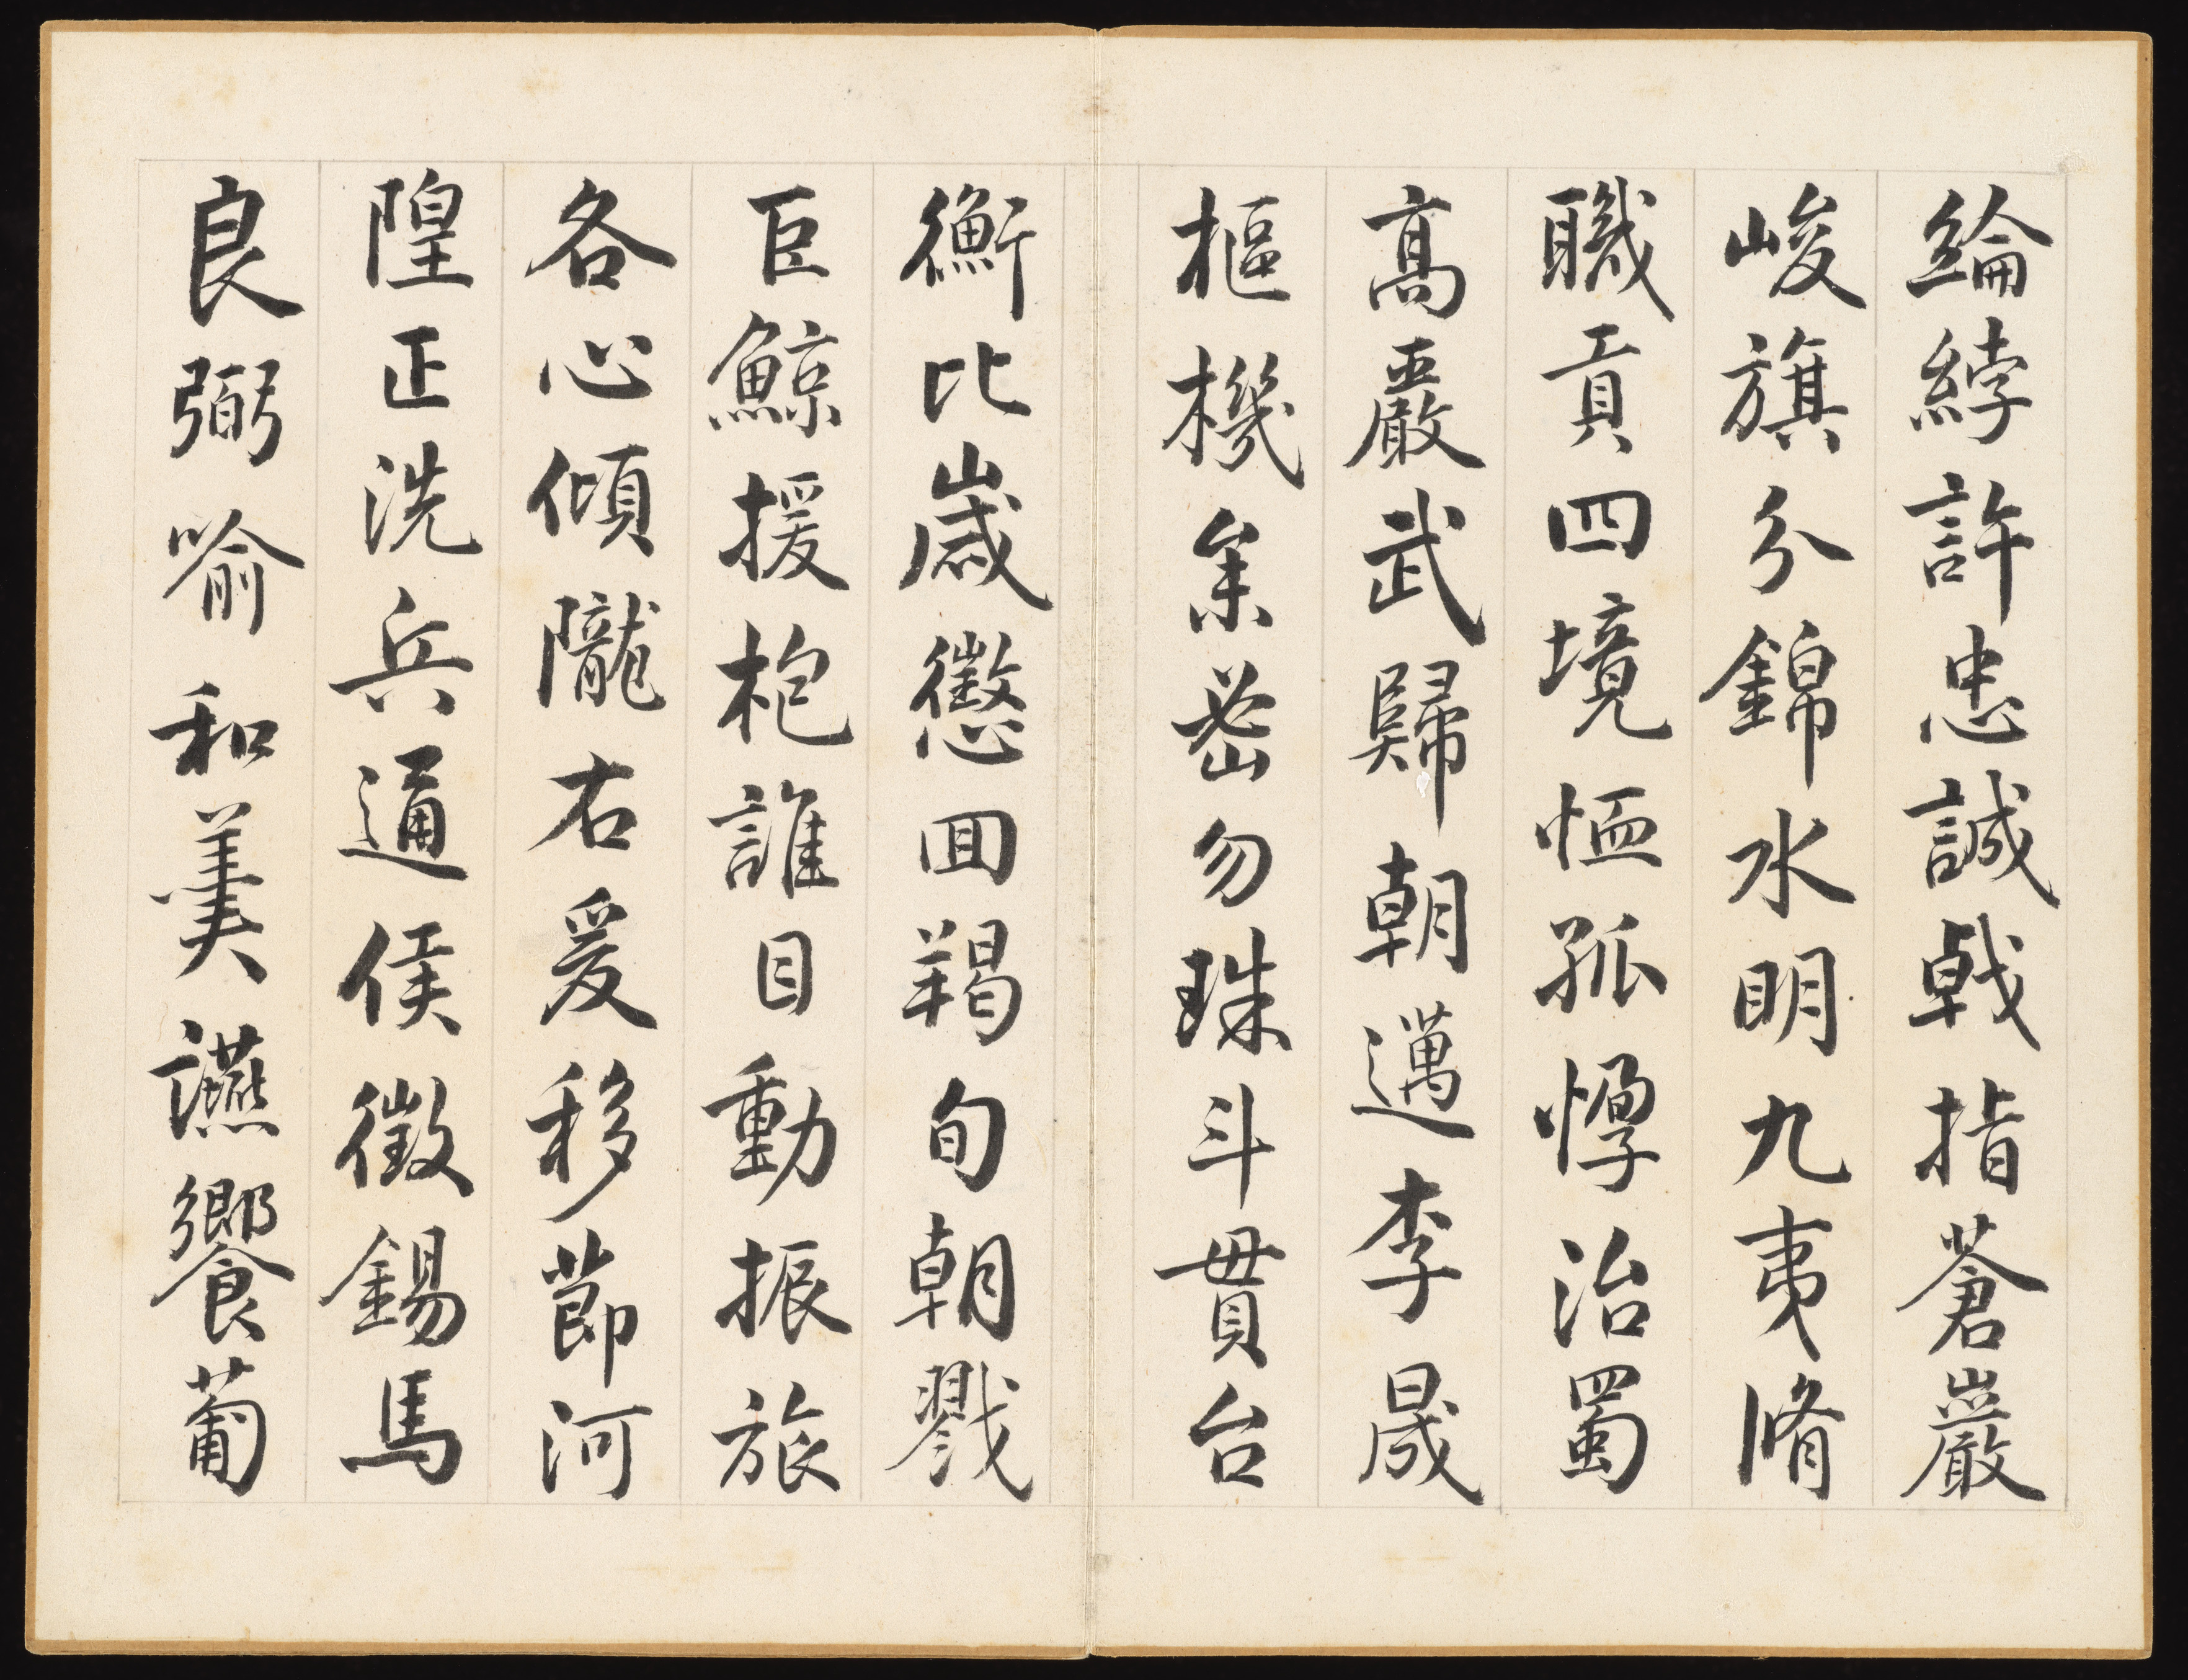 綸綍許忠誠戟指蒼巖
峻旗分錦水明九夷脩
職貢四境恤孤惸治蜀
高嚴武歸朝邁李晟
樞機參密勿珠斗貫台
衡比歲懲囬羯旬朝戮
巨鯨援枹誰目動振旅
各心傾隴右爰移節河
隍正洗兵通侯徵錫馬
良弼喻和羹讌饗葡